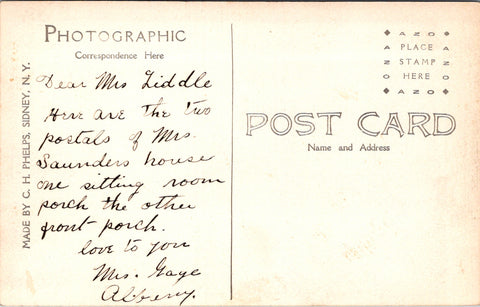 PHOTOGRAPHIC
Correspondence Here
Dear Mrs Liddle
Here are the two
postals of Mrs.
Saunders house
one sitting room
porch the other
front porch.
love to you
Mrs. Gaye
Albany.
MADE BY C. H. PHELPS, SIDNEY, N. Y.
AZO
PLACE
STAMP
HERE
AZO
AZO
AZO
POST CARD
Name and Address